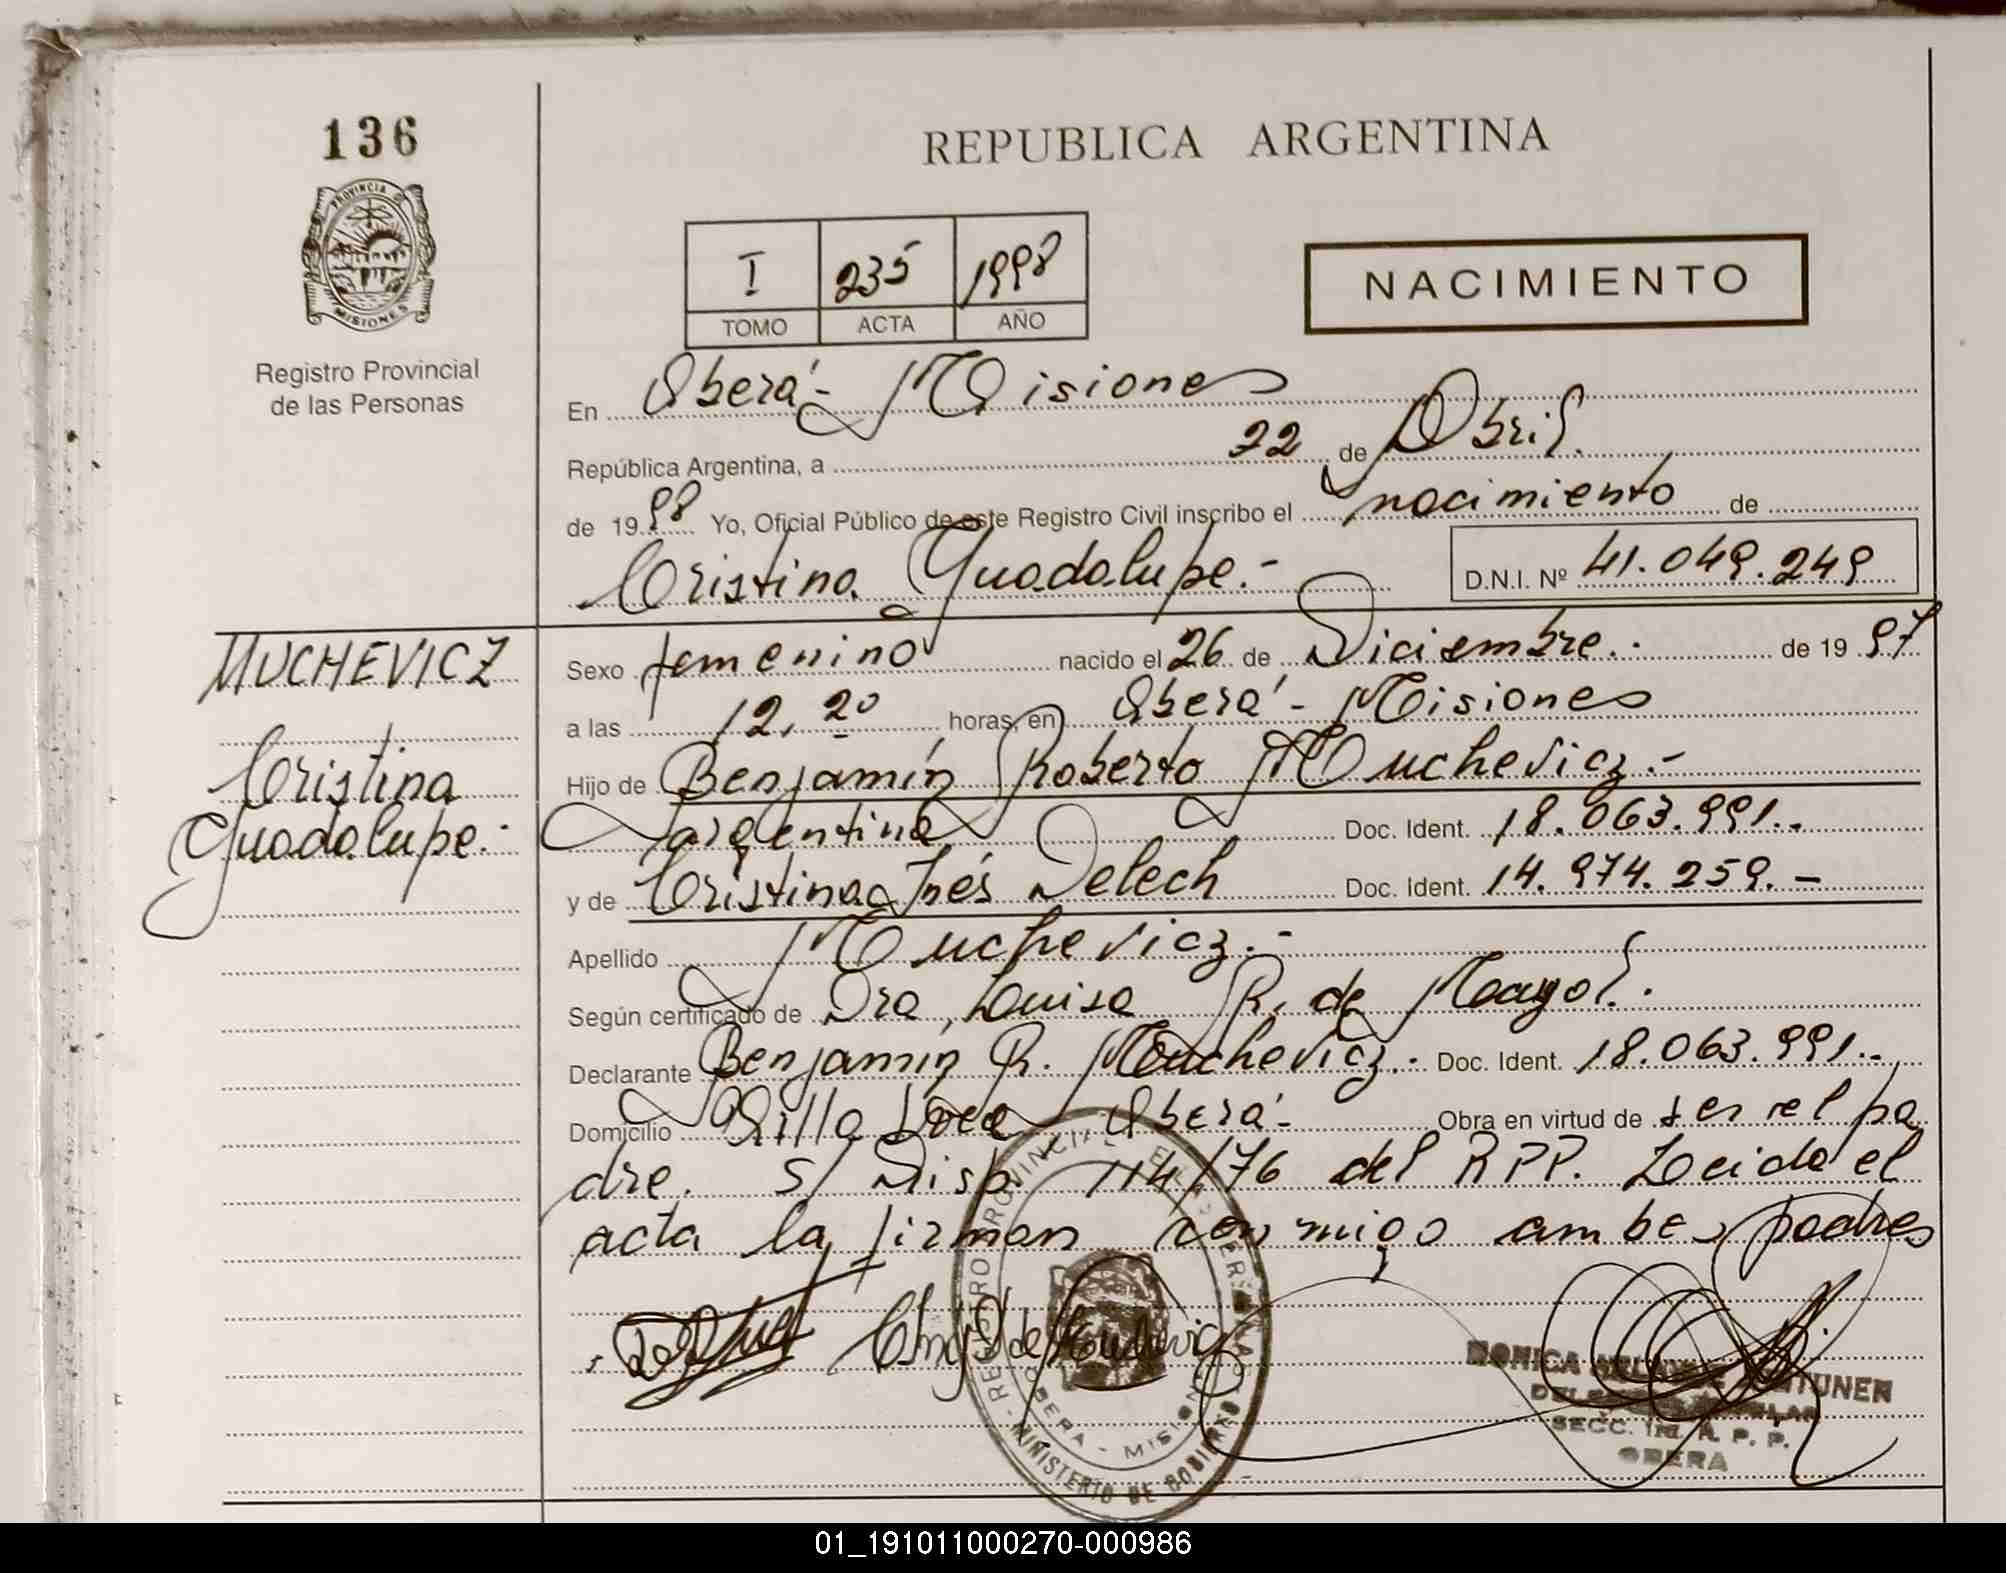 136
REPUBLICA ARGENTINA
PROVINCIA DE
MISIONES
Registro Provincial
de las Personas
I 235 1998
TOMO ACTA AÑO
NACIMIENTO
En Oberá - Misiones
República Argentina, a 22 de Abril
de 1998 Yo, Oficial Público de este Registro Civil inscribo el nacimiento de
Cristina Guadalupe.-
D.N.I. Nº 41.049.249
MUCHEVICZ
Cristina
Guadalupe.-
Sexo femenino nacido el 26 de Diciembre.- de 1997
a las 12,20 horas, en Oberá - Misiones
Hijo de Benjamín Roberto Muchevicz.-
argentino Doc. Ident. 18.063.991.-
y de Cristina Inés Delech Doc. Ident. 14.974.259.-
Apellido Muchevicz.-
Según certificado de Dra, Luisa R. de Mayol.
Declarante Benjamín R. Muchevicz.- Doc. Ident. 18.063.991.-
Domicilio Villa Oberá - Obra en virtud de ser el pa
dre. S/ Disp. 114/76 del RPP. Leida el
acta la firman conmigo ambos padres
REGISTRO PROVINCIAL DE LAS PERSONAS
OBERA - MISIONES
MINISTERIO DE GOBIERNO
MONICA
SECC. 1ra. R. P. P.
OBERA
01_191011000270-000986